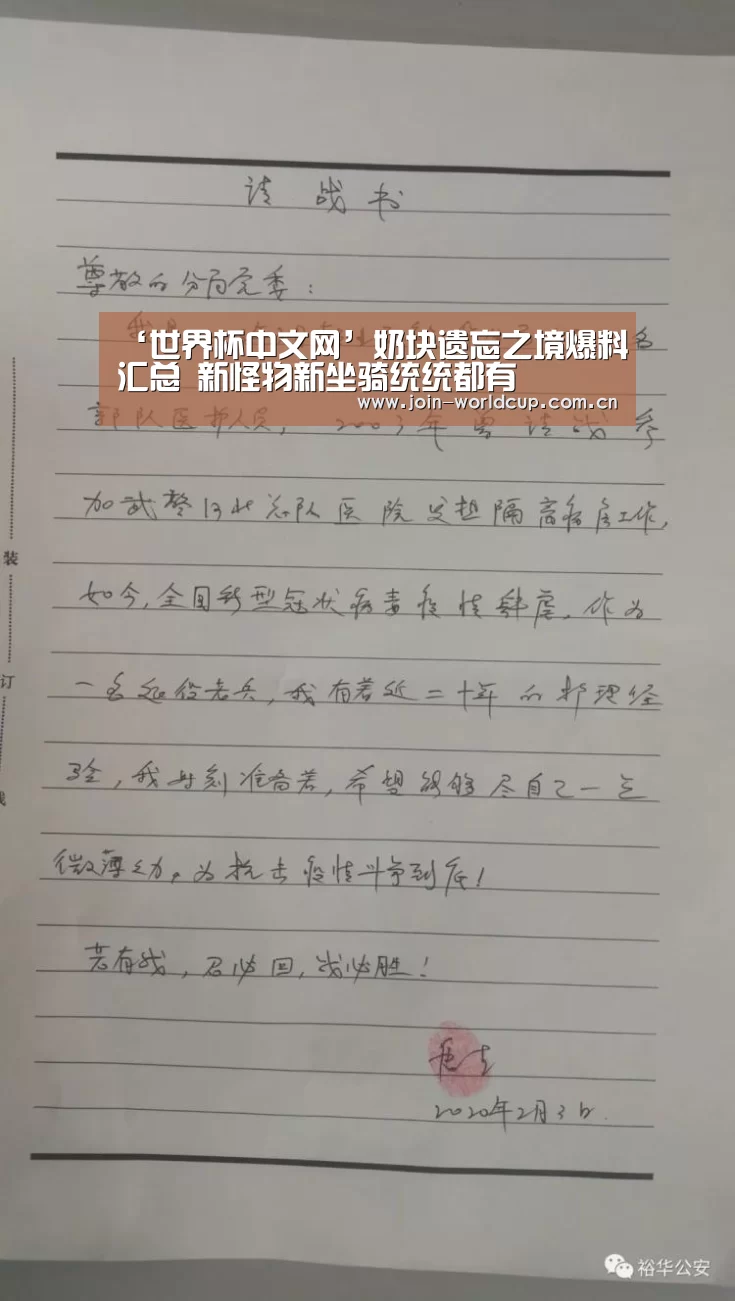 请战书
尊敬的分局党委：
‘世界杯中文网’奶块遗忘之境爆料
汇总 新怪物新坐骑统统都有
www.join-worldcup.com.cn
名
部队医护人员，2003年曾请战参
加武警河北总队医院发热隔离病房工作，
如今，全国新型冠状病毒疫情肆虐，作为
一名退役老兵，我有着近二十年的护理经
验，我时刻准备着，希望能够尽自己一点
微薄之力，为抗击疫情斗争到底！
若有战，召必回，战必胜！
2020年2月3日
装
订
线
裕华公安